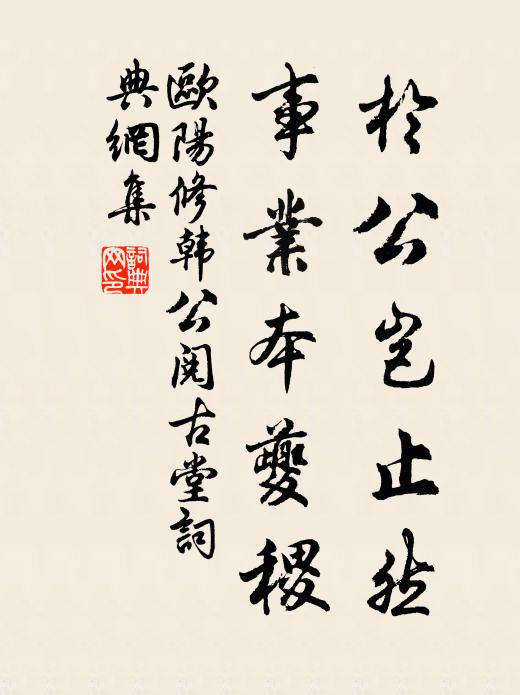 於公岂止然
事業本夔稷
歐陽修韩公阅古堂詞
典網集
詞典网印